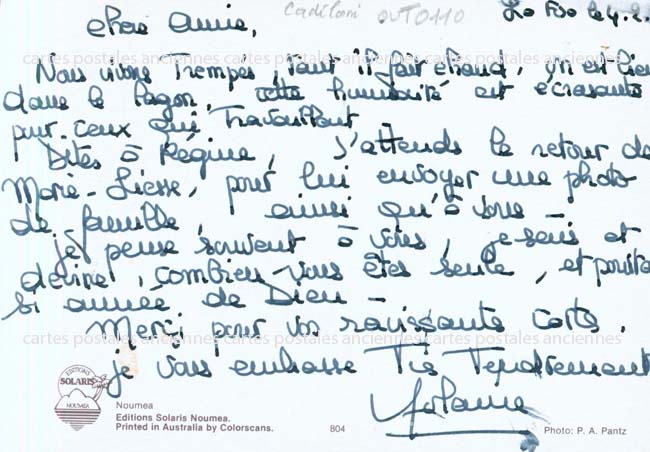 chère Annie,
Nous vivons Trempés, tant il fait chaud, on est bien
dans le lagon, cette humidité est écrasante
pur ceux qui Travaillent
Dites à Régine, J'attends le retour de
Marie-Liesse, pour lui envoyer une photo
de famille, ainsi qu'à vous -
je pense souvent à vous, je sens et
devine, combien vous êtes seule, et pourta
si aimée de Dieu -
Merci pour vos ravissante carte.
je vous embrasse Tendrement
EDITIONS
SOLARIS
NOUMEA
Noumea
Editions Solaris Noumea.
Printed in Australia by Colorscans.
804
Photo: P. A. Pantz
cartes postales anciennes cartes postales anciennes cartes postales anciennes
cartes postales anciennes cartes postales anciennes cartes postales anciennes